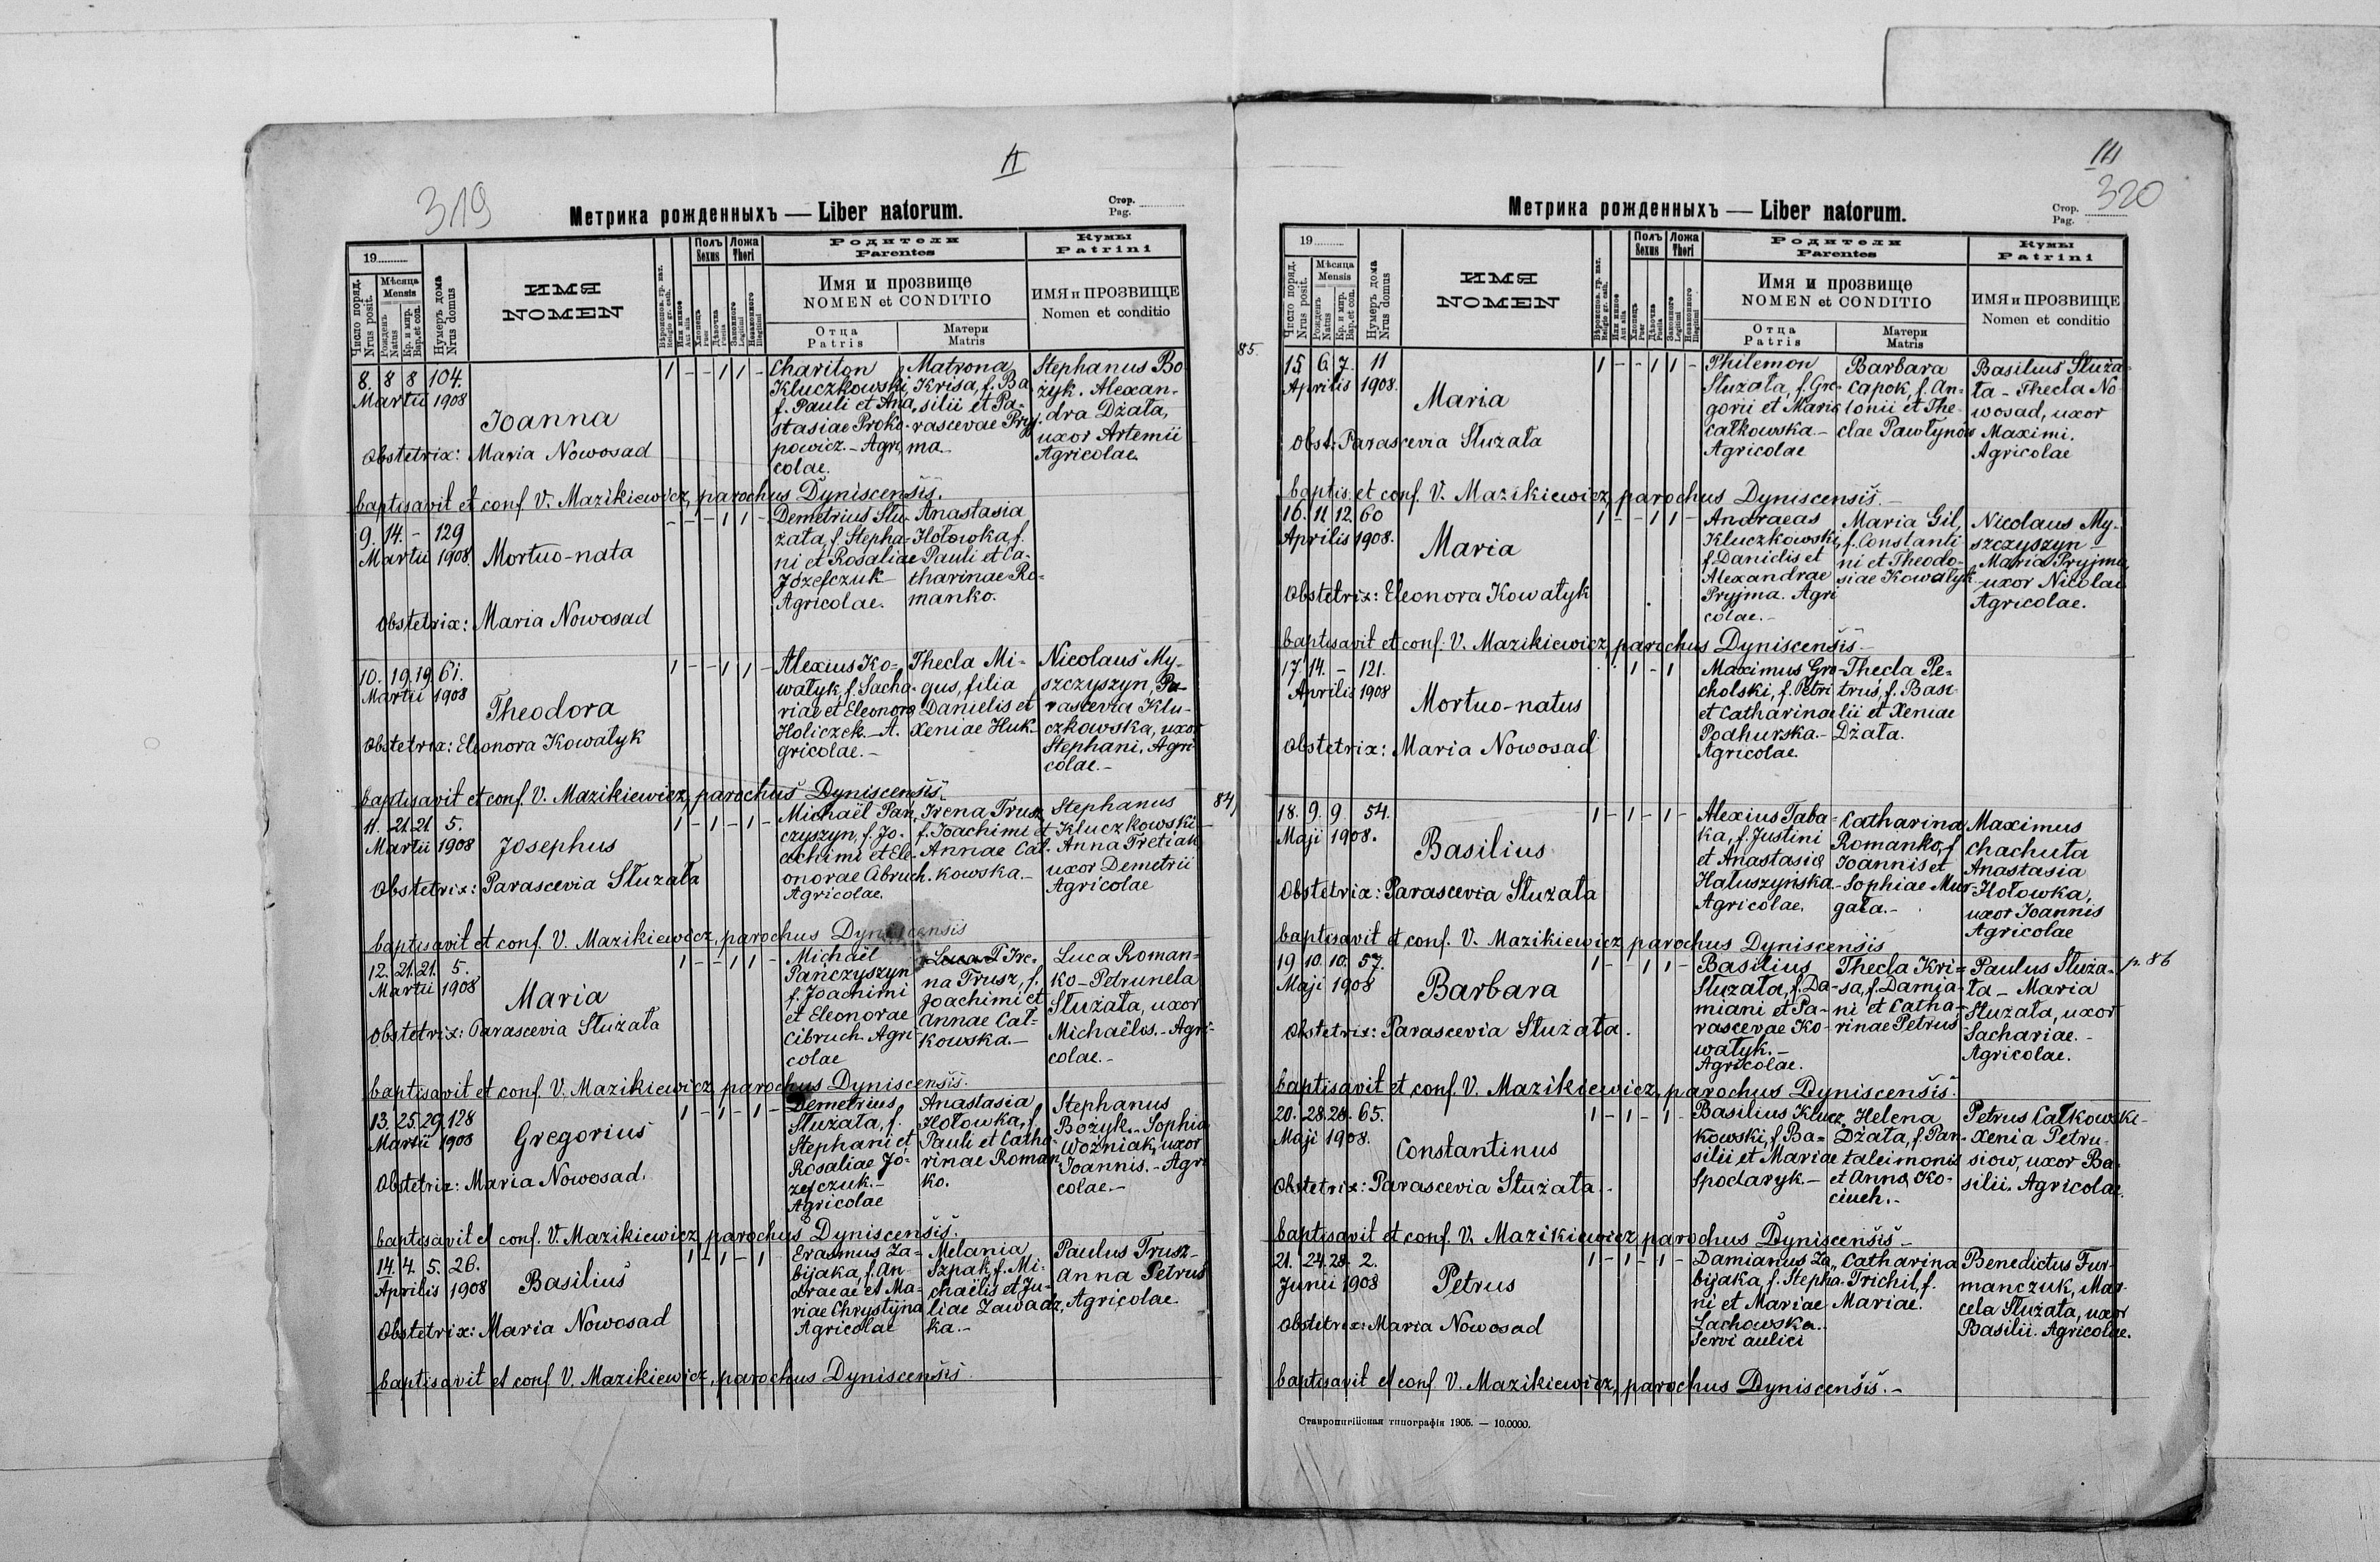 319
II
Метрика рожденныхъ — Liber natorum.
Стор.
Pag.
19
Число поряд.
Nrus posit.
Мѣсяца
Mensis
Рожденъ
Natus
Кр. и мир.
Bap. et con.
Нумеръ дома
Nrus domus
ИМЯ
NOMEN
Вѣроиспов. гр. кат.
Religio gr. cath.
Или инное
Aut alia
Полъ
Sexus
Хлопець
Puer
Дѣвочка
Puella
Ложа
Thori
Законного
Legitimi
Незаконного
Illegitimi
Родители
Parentes
Имя и прозвище
NOMEN et CONDITIO
Отца
Patris
Матери
Matris
Кумы
Patrini
ИМЯ и ПРОЗВИЩЕ
Nomen et conditio
8. 8 8 104.
Martii 1908
Joanna
Obstetrix: Maria Nowosad
1 - - 1 1 -
Chariton
Kluczkowski,
f. Pauli et Ana
stasiae Proko-
powicz. - Agri
colae.
Matrona
Krisa, f. Ba
silii et Pa-
rascevae Pryj
ma.
Stephanus Bo
żyk. Alexan-
dra Dżała,
uxor Artemii
Agricolae.
baptisavit et conf. V. Mazikiewicz, parochus Dyniscensis.
9. 14. - 129
Martii 1908
Mortuo-nata
Obstetrix: Maria Nowosad
- - - 1 1 -
Demetrius Słu-
żała, f. Stepha-
ni et Rosaliae
Józefczuk -
Agricolae.
Anastasia
Hołowka, f.
Pauli et Ca-
tharinae Ro-
manko.
10. 19. 19. 61.
Martii 1908
Theodora
Obstetrix: Eleonora Kowałyk
1 - - 1 1 -
Alexius Ko-
wałyk, f. Sacha-
riae et Eleonora
Holiczek. - A.
gricolae. -
Thecla Mi-
gus, filia
Danielis et
Xeniae Huk. -
Nicolaus My-
szczyszyn, Pa-
rascevia Klu-
czkowska, uxor
Stephani. Agri
colae. -
baptisavit et conf. V. Mazikiewicz, parochus Dyniscensis.
84)
11. 21. 21. 5.
Martii 1908
Josephus
Obstetrix: Parascevia Służała
1 - 1 - 1 -
Michaël Pan,
czyszyn, f. Jo-
achimi et Ele-
onorae Cibruch.
Agricolae.
Irena Trusz
f. Joachimi et
Annae Cał-
kowska. -
Stephanus
Kluczkowski
Anna Tretiak
uxor Demetrii
Agricolae
baptisavit et conf. V. Mazikiewicz, parochus Dyniscensis
12. 21. 21. 5.
Martii 1908
Maria
Obstetrix: Parascevia Służała
1 - - 1 1 -
Michaël
Panczyszyn
f. Joachimi
et Eleonorae
Cibruch. Agri
colae
Ire-
na Trusz, f.
Joachimi et
Annae Cał-
kowska. -
Luca Roman-
ko - Petrunela
Służała, uxor
Michaëlis. - Agri-
colae. -
baptisavit et conf. V. Mazikiewicz, parochus Dyniscensis.
13. 25. 29. 128
Martii 1908
Gregorius
Obstetrix: Maria Nowosad.
1 - 1 - 1 -
Demetrius
Służała, f.
Stephani et
Rosaliae Jó-
zefczuk. -
Agricolae
Anastasia
Hołowka, f.
Pauli et Catha
rinae Roman
ko.
Stephanus
Bożyk. - Sophia
Woźniak, uxor
Joannis. - Agri
colae. -
baptisavit et conf. V. Mazikiewicz, parochus Dyniscensis.
14. 4. 5. 26.
Aprilis 1908
Basilius
Obstetrix: Maria Nowosad
1 - 1 - 1
Erasmus Za-
bijaka, f. An-
draeae et Ma-
riae Chrystyna
Agricolae
Melania
Szpak, f. Mi-
chaëlis et Ju-
liae Zawadz,
ka. -
Paulus Trusz -
Anna Petrus
Agricolae
baptisavit et conf V. Mazikiewicz, parochus Dyniscensis.
III
320
Метрика рожденныхъ — Liber natorum.
Стор.
Pag.
19
Число поряд.
Nrus posit.
Мѣсяца
Mensis
Рожденъ
Natus
Кр. и мир.
Bap. et con.
Нумеръ дома
Nrus domus
ИМЯ
NOMEN
Вѣроиспов. гр. кат.
Religio gr. cath.
Или инное
Aut alia
Полъ
Sexus
Хлопець
Puer
Дѣвочка
Puella
Ложа
Thori
Законного
Legitimi
Незаконного
Illegitimi
Родители
Parentes
Имя и прозвище
NOMEN et CONDITIO
Отца
Patris
Матери
Matris
Кумы
Patrini
ИМЯ и ПРОЗВИЩЕ
Nomen et conditio
85.
15. 6. 7. 11
Aprilis 1908.
Maria
Obst: Parascevia Służała
1 - - 1 1 -
Philemon
Służała, f. Gre-
gorii et Maria
Całkowska. -
Agricolae
Barbara
Capok, f. An-
tonii et The-
clae Pawłynow
Basilius Służa-
ła - Thecla No-
wosad, uxor
Maximi.
Agricolae
baptis. et conf. V. Mazikiewicz, parochus Dyniscensis. -
16. 11 12. 60
Aprilis 1908.
Maria
Obstetrix: Eleonora Kowałyk
1 - - 1 1 -
Andraeas
Kluczkowski,
f. Danielis et
Alexandrae
Pryjma. Agri
colae. -
Maria Gil,
f. Constanti
ni et Theodo-
siae Kowałyk
Nicolaus My-
szczyszyn -
Maria Pryjma,
uxor Nicolai
Agricolae.
baptisavit et conf. V. Mazikiewicz, parochus Dyniscensis. -
17. 14. - 121.
Aprilis 1908
Mortuo-natus
Obstetrix: Maria Nowosad
1 - 1
Maximus Gro-
cholski, f. Petri
et Catharinae
Podhurska. -
Agricolae.
Thecla Pe-
trus, f. Basi-
lii et Xeniae
Dżała.
18. 9. 9. 54.
Maji 1908.
Basilius
Obstetrix: Parascevia Służała
1 - 1 - 1 -
Alexius Taba-
ka, f. Justini
et Anastasia
Hałuszyńska. -
Agricolae.
Catharina
Romanko, f.
Joannis et
Sophiae Mur-
gała. -
Maximus
Chachuła
Anastasia
Hołowka,
uxor Joannis
Agricolae
baptisavit et conf. V. Mazikiewicz, parochus Dyniscensis
19 10. 10. 57.
Maji 1908
Barbara
Obstetrix: Parascevia Służała.
1 - 1 1 -
Basilius
Służała, f. Da-
miani et Pa-
rascevae Ko-
wałyk. -
Agricolae.
Thecla Kri-
sa, f. Damia-
ni et Catha-
rinae Petrus
Paulus Służa-
ła - Maria
Służała, uxor
Sachariae. -
Agricolae.
p. 86
baptisavit et conf. V. Mazikiewicz, parochus Dyniscensis.
20. 28. 28. 65.
Maji 1908.
Constantinus
Obstetrix: Parascevia Służała. -
1 - 1 - 1 -
Basilius Klucz,
kowski, f. Ba-
silii et Mariae
Spodaryk. -
Helena
Dżała, f. Pan-
taleimonis
et Anna Ko-
ciuch. -
Petrus Całkowski -
Xenia Petru-
siow, uxor Ba-
silii. Agricolae.
baptisavit et conf. V. Mazikiewicz, parochus Dyniscensis -
21. 24. 28. 2.
Junii 1908
Petrus
Obstetrix: Maria Nowosad
1 - 1 - 1 -
Damianus Za,
bijaka, f. Stepha-
ni et Mariae
Lachowska. -
Servi aulici
Catharina
Trichil, f.
Mariae.
Benedictus Fur-
manczuk, Mar-
cela Służała, uxor
Basilii. Agricolae.
baptisavit et conf V. Mazikiewicz, parochus Dyniscensis. -
Ставропигійская типографія 1905. — 10.0000.